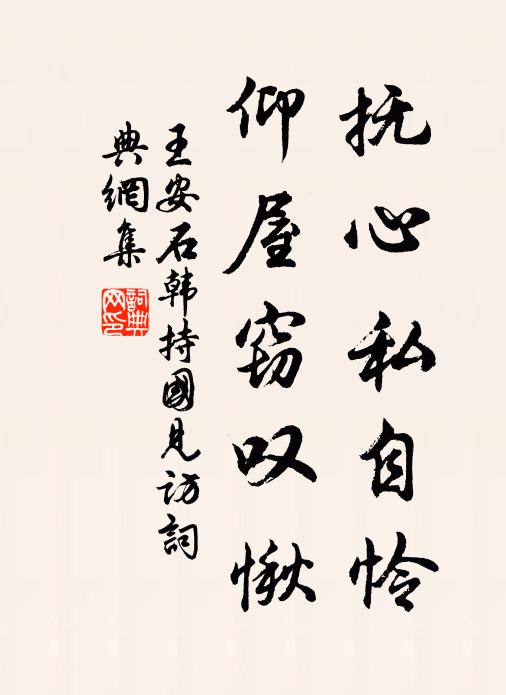 抚心私自怜
仰屋窃叹愀
王安石韩持國见访詞
典網集
詞典网印